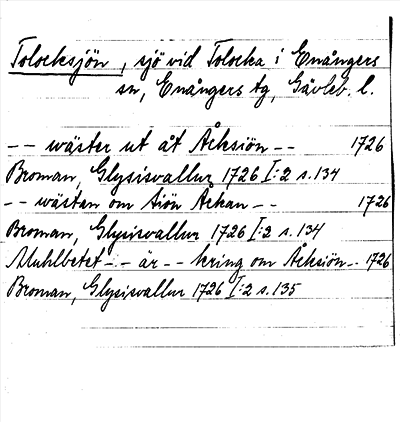 Tolocksjön, sjö vid Tolocka i Enångers
sn, Enångers tg, Gävleb. l.
-- wäster ut åt Åcksiön -- 1726
Broman, Glysisvallur 1726 I:2 s. 134
-- wästan om siön Åckan -- 1726
Broman, Glysisvallur 1726 I:2 s. 134
Muhlbetet -- är -- kring om Åcksiön -- 1726
Broman, Glysisvallur 1726 I:2 s. 135